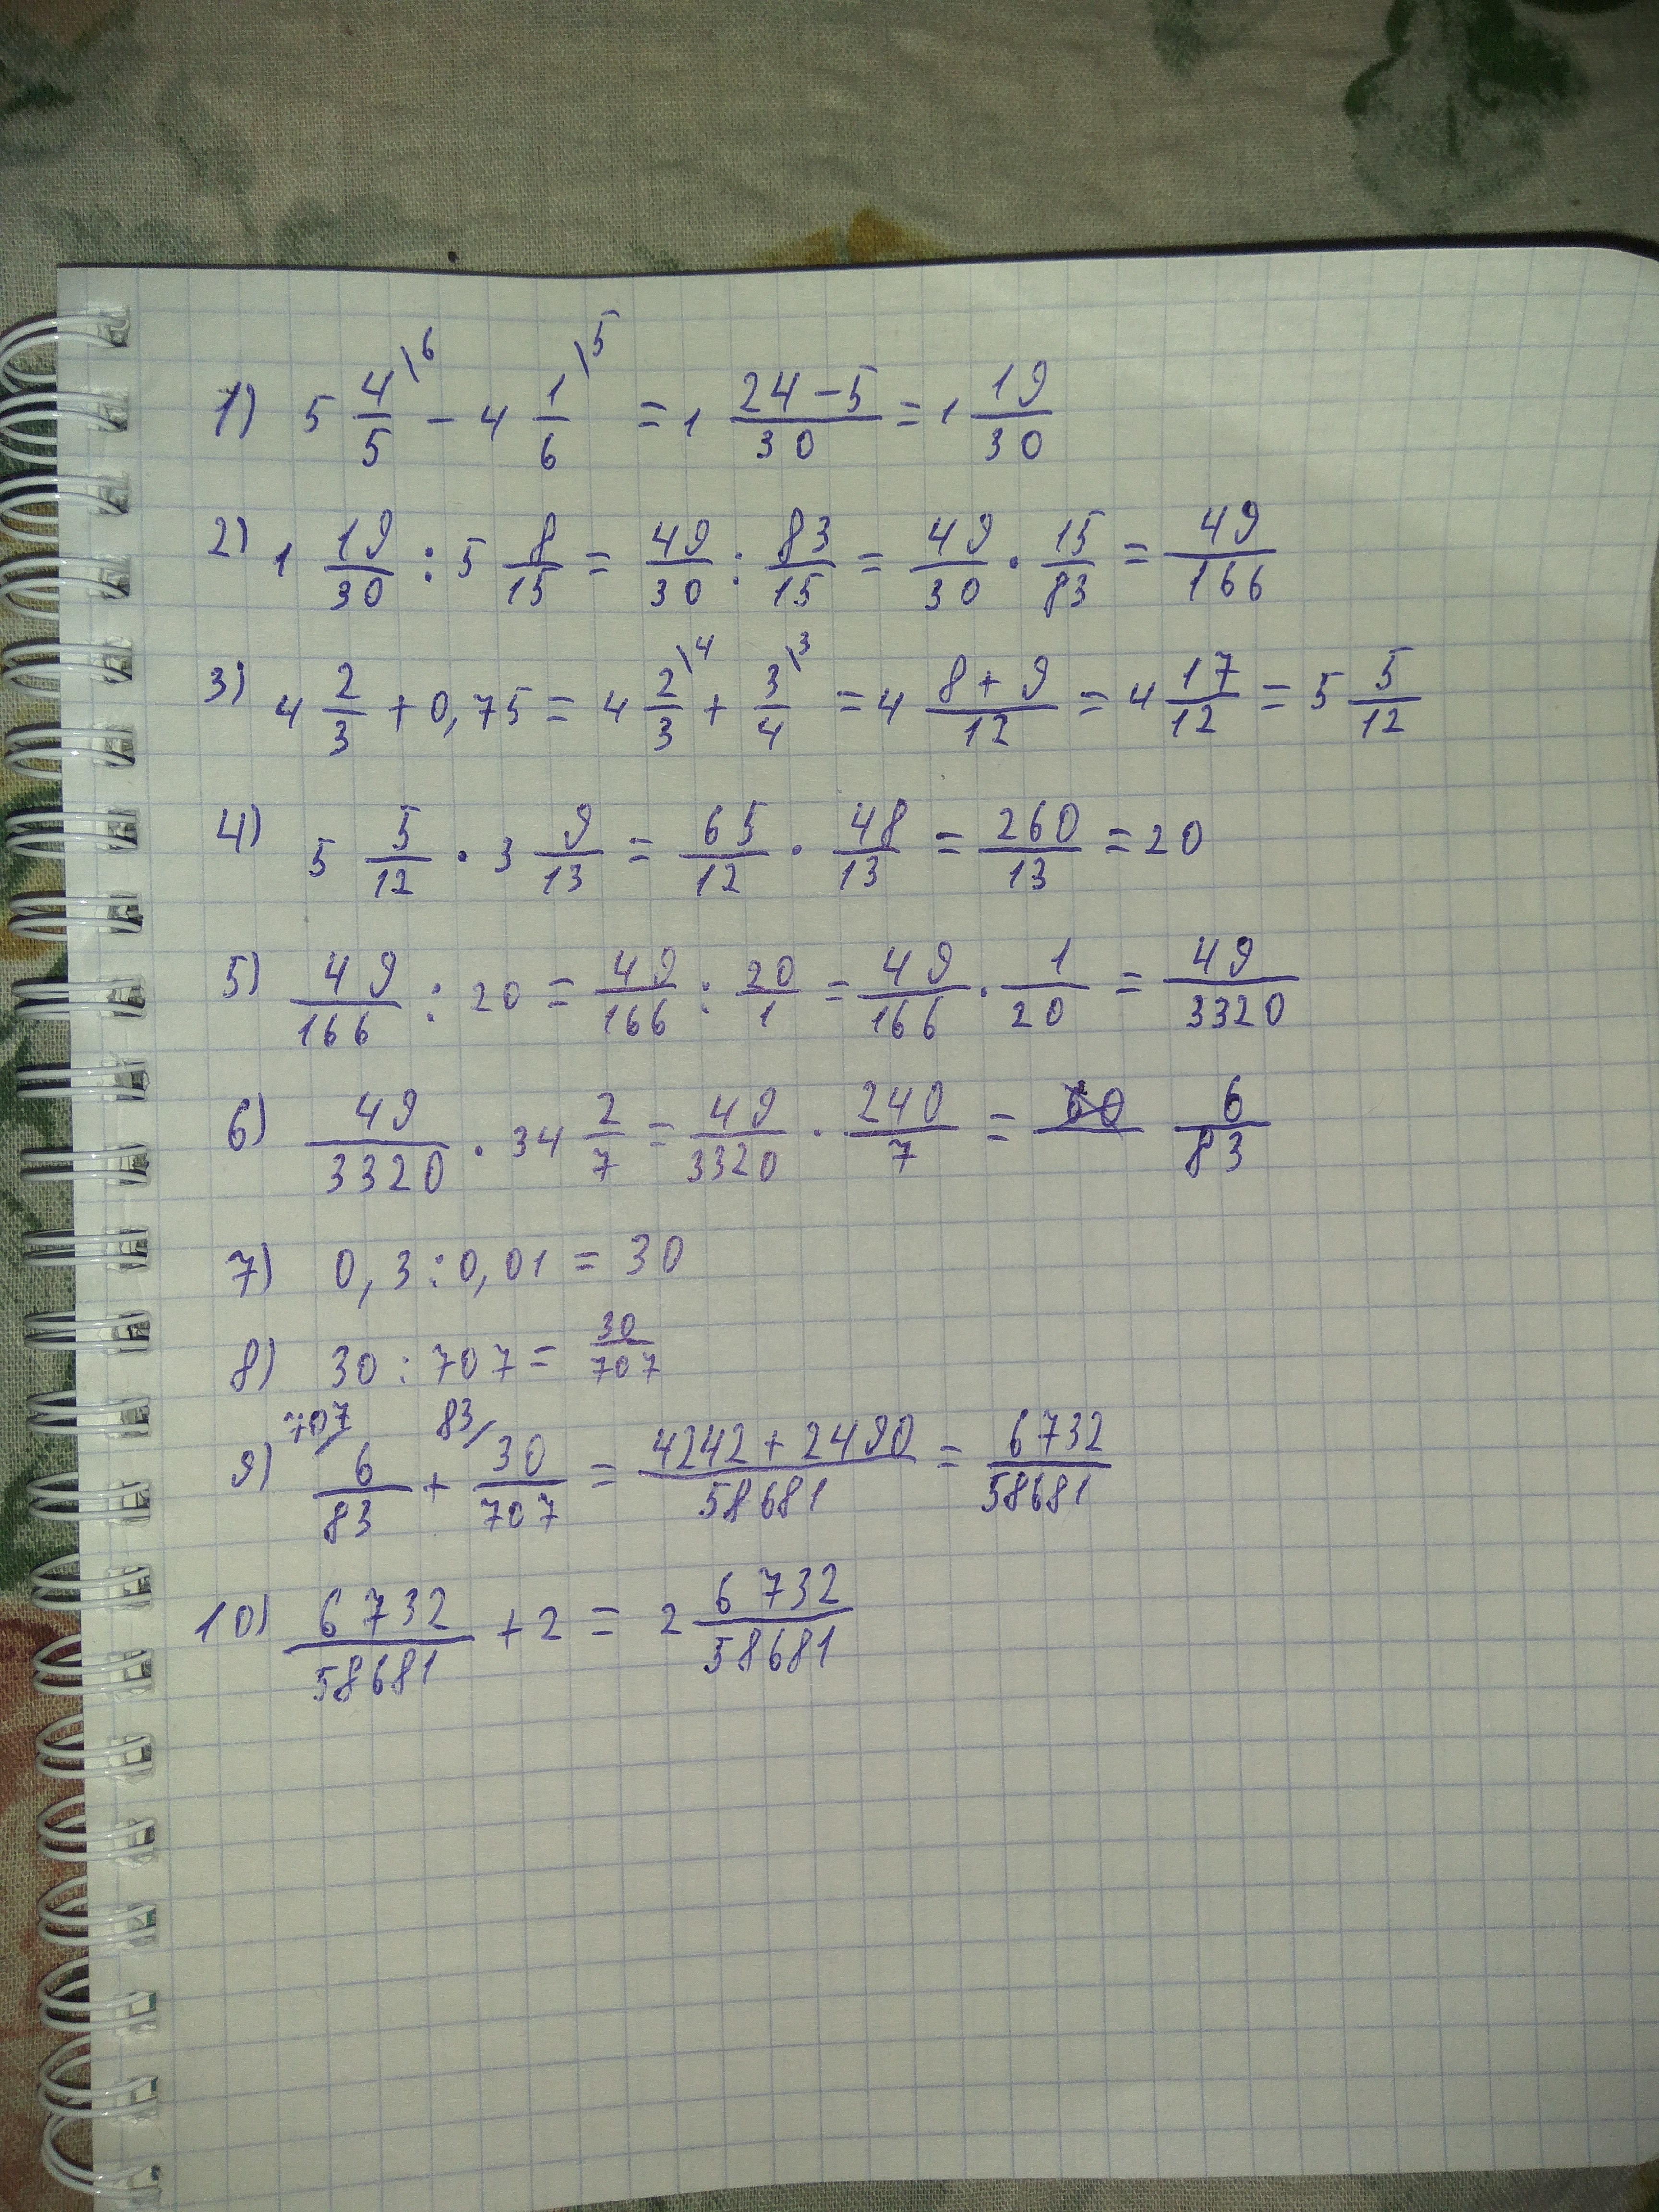 1) 5 4/5 \6 - 4 1/6 \5 = 1 (24-5)/30 = 1 19/30
2) 1 19/30 : 5 8/15 = 49/30 : 83/15 = 49/30 · 15/83 = 49/166
3) 4 2/3 + 0,75 = 4 2/3 \4 + 3/4 \3 = 4 (8+9)/12 = 4 17/12 = 5 5/12
4) 5 5/12 · 3 9/13 = 65/12 · 48/13 = 260/13 = 20
5) 49/166 : 20 = 49/166 : 20/1 = 49/166 · 1/20 = 49/3320
6) 49/3320 · 34 2/7 = 49/3320 · 240/7 = 6/83
7) 0,3 : 0,01 = 30
8) 30 : 707 = 30/707
9) 707/ 6/83 + 83/ 30/707 = (4242+2490)/58681 = 6732/58681
10) 6732/58681 + 2 = 2 6732/58681